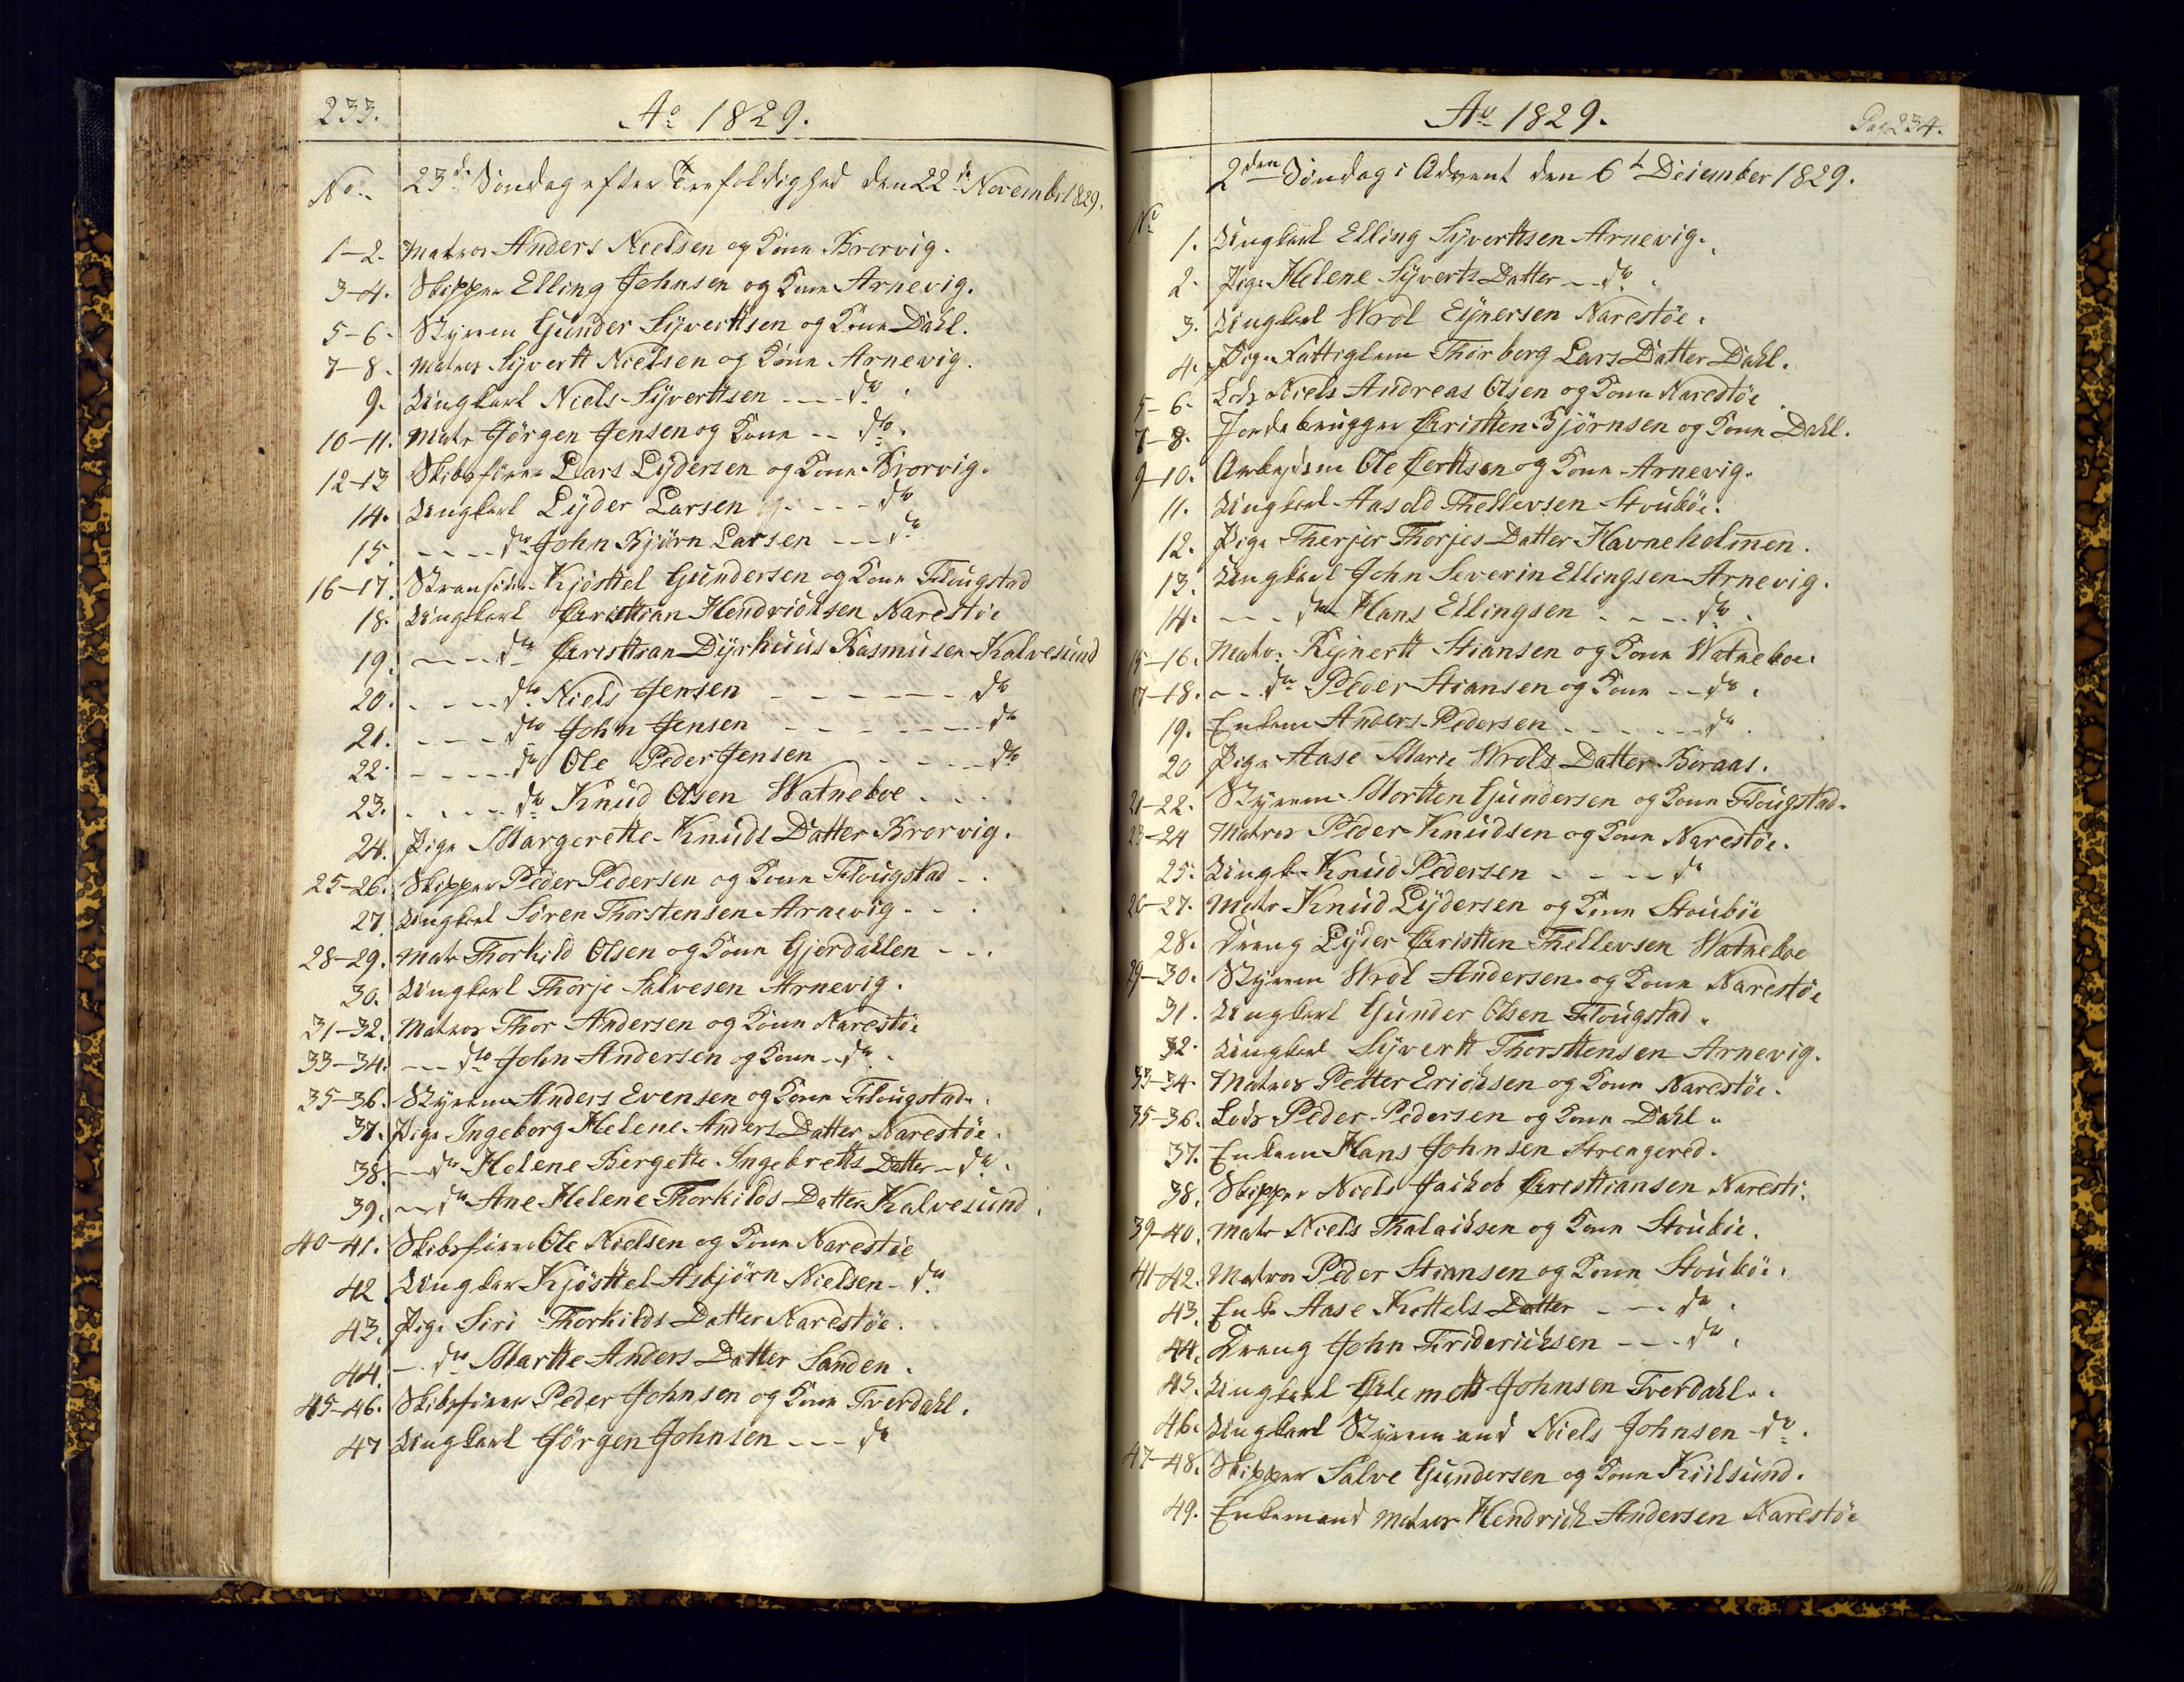 233.
Ao 1829.
No. 23de Søndag efter Trefoldighed den 22de November 1829.
1-2. Matros Anders Nielsen og Kone Brorvig.
3-4. Skipper Elling Johnsen og Kone Arnevig.
5-6. Styrm Gunder Syverttsen og Kone Dahl.
7-8. Matros Syvertt Nielsen og Kone Arnevig.
9. Ungkarl Niels Syverttsen - - - do.
10-11. Matr Jörgen Jensen og Kone - - do.
12-13 Skibsförer Lars Lydersen og Kone Brorvig.
14. Ungkarl Lyder Larsen - - - do
15. - - - - do John Bjørn Larsen - - - do
16-17. Kjösttel Gundersen og Kone Flougstad
18. Ungkarl Christtian Hendrichsen Narestöe
19. - - - do Christtian Dyrhuus Rasmusen Kalvesund
20. - - - - do Niels Jensen - - - - - - - do
21. - - - - do John Jensen - - - - - - - do
22. - - - - do Ole Peder Jensen - - - - do
23. - - - - do Knud Olsen Watneboe - - -
24. Pige Margerette Knuds Datter Brorvig.
25-26. Skipper Peder Pedersen og Kone Flougstad - -
27. Ungkarl Sören Thorstensen Arnevig - - -
28-29. Matr Thorkild Olsen og Kone Gjerdahlen - - -
30. Ungkarl Thorje Salvesen Arnevig.
31-32. Matros Thor Andersen og Kone Narestöe
33-34. - - - do John Andersen og Kone - - do.
35-36. Styrem Anders Evensen og Kone Flougstad.
37. Pige Ingeborg Helene Anders Datter Narestöe.
38. - - do Helene Bergette Ingebretts Datter - do.
39. - - do Ane Helene Thorkilds Datter Kalvesund.
40-41. Skibsförer Ole Nielsen og Kone Narestöe
42. Ungkar Kjösttel Asbjørn Nielsen - do
43. Pige Siri Thorkilds Datter Narestöe.
44. - - do Martte Anders Datter Sanden.
45-46. Skibsförer Peder Johnsen og Kone Tverdahl.
47 Ungkarl Jörgen Johnsen - - - do
Ao 1829.
Pag 234.
2den Søndag i Advent den 6te December 1829.
No
1. Ungkarl Elling Syverttsen Arnevig.
2. Pige Helene Syverts Datter - - do.
3. Ungkarl Wrol Eynersen Narestöe.
4. Pige Fattiglem Thorborg Lars Datter Dahl.
5-6. Lods Niels Andreas Olsen og Kone Narestöe
7-8. Jordebrugger Christten Bjørnsen og Kone Dahl.
9-10. Arbejdsm Ole Certtsen og Kone Arnevig.
11. Ungkarl Aasold Thellevsen Stouböe.
12. Pige Therjer Thorjes Datter Havneholmen.
13. Ungkarl John Severin Ellingsen Arnevig.
14. - - - do Hans Ellingsen - - - - do.
15-16. Matr. Rejnertt Stiansen og Kone Watneboe.
17-18. - - do Peder Stiansen og Kone - - do.
19. Enkem Anders Pedersen - - - - - - do.
20 Pige Aase Marie Wrols Datter Boraas.
21-22. Styrem Mortten Gundersen og Kone Flougstad.
23-24 Matros Peder Knudsen og Kone Narestöe.
25. Ungk. Knud Pedersen - - - - do
26-27. Matr Knud Lydersen og Kone Stouböe
28. Dreng Lyder Christten Thellevsen Watneboe
29-30. Styrem Wrol Andersen og Kone Narestöe
31. Ungkarl Gunder Olsen Flougstad.
32. Ungkarl Syvertt Thorsttensen Arnevig.
33-34. Matros Petter Erichsen og Kone Narestöe.
35-36. Lods Peder Pedersen og Kone Dahl.
37. Enkem Hans Johnsen Strengered.
38. Skipper Niels Jaikob Christtiansen Naresti.
39-40. Matr Niels Thalaiksen og Kone Stouböe.
41-42. Matros Peder Stiansen og Kone Stouböe.
43. Enke Aase Kittels Datter - - - do.
44. Dreng John Friderichsen - - - do.
45. Ungkarl Clemett Johnsen Tverdahl.
46. Ungkarl Styremand Niels Johnsen - do.
47-48. Skipper Salve Gundersen og Kone Kiilsund.
49. Enkemand Matros Hendrich Andersen Narestöe